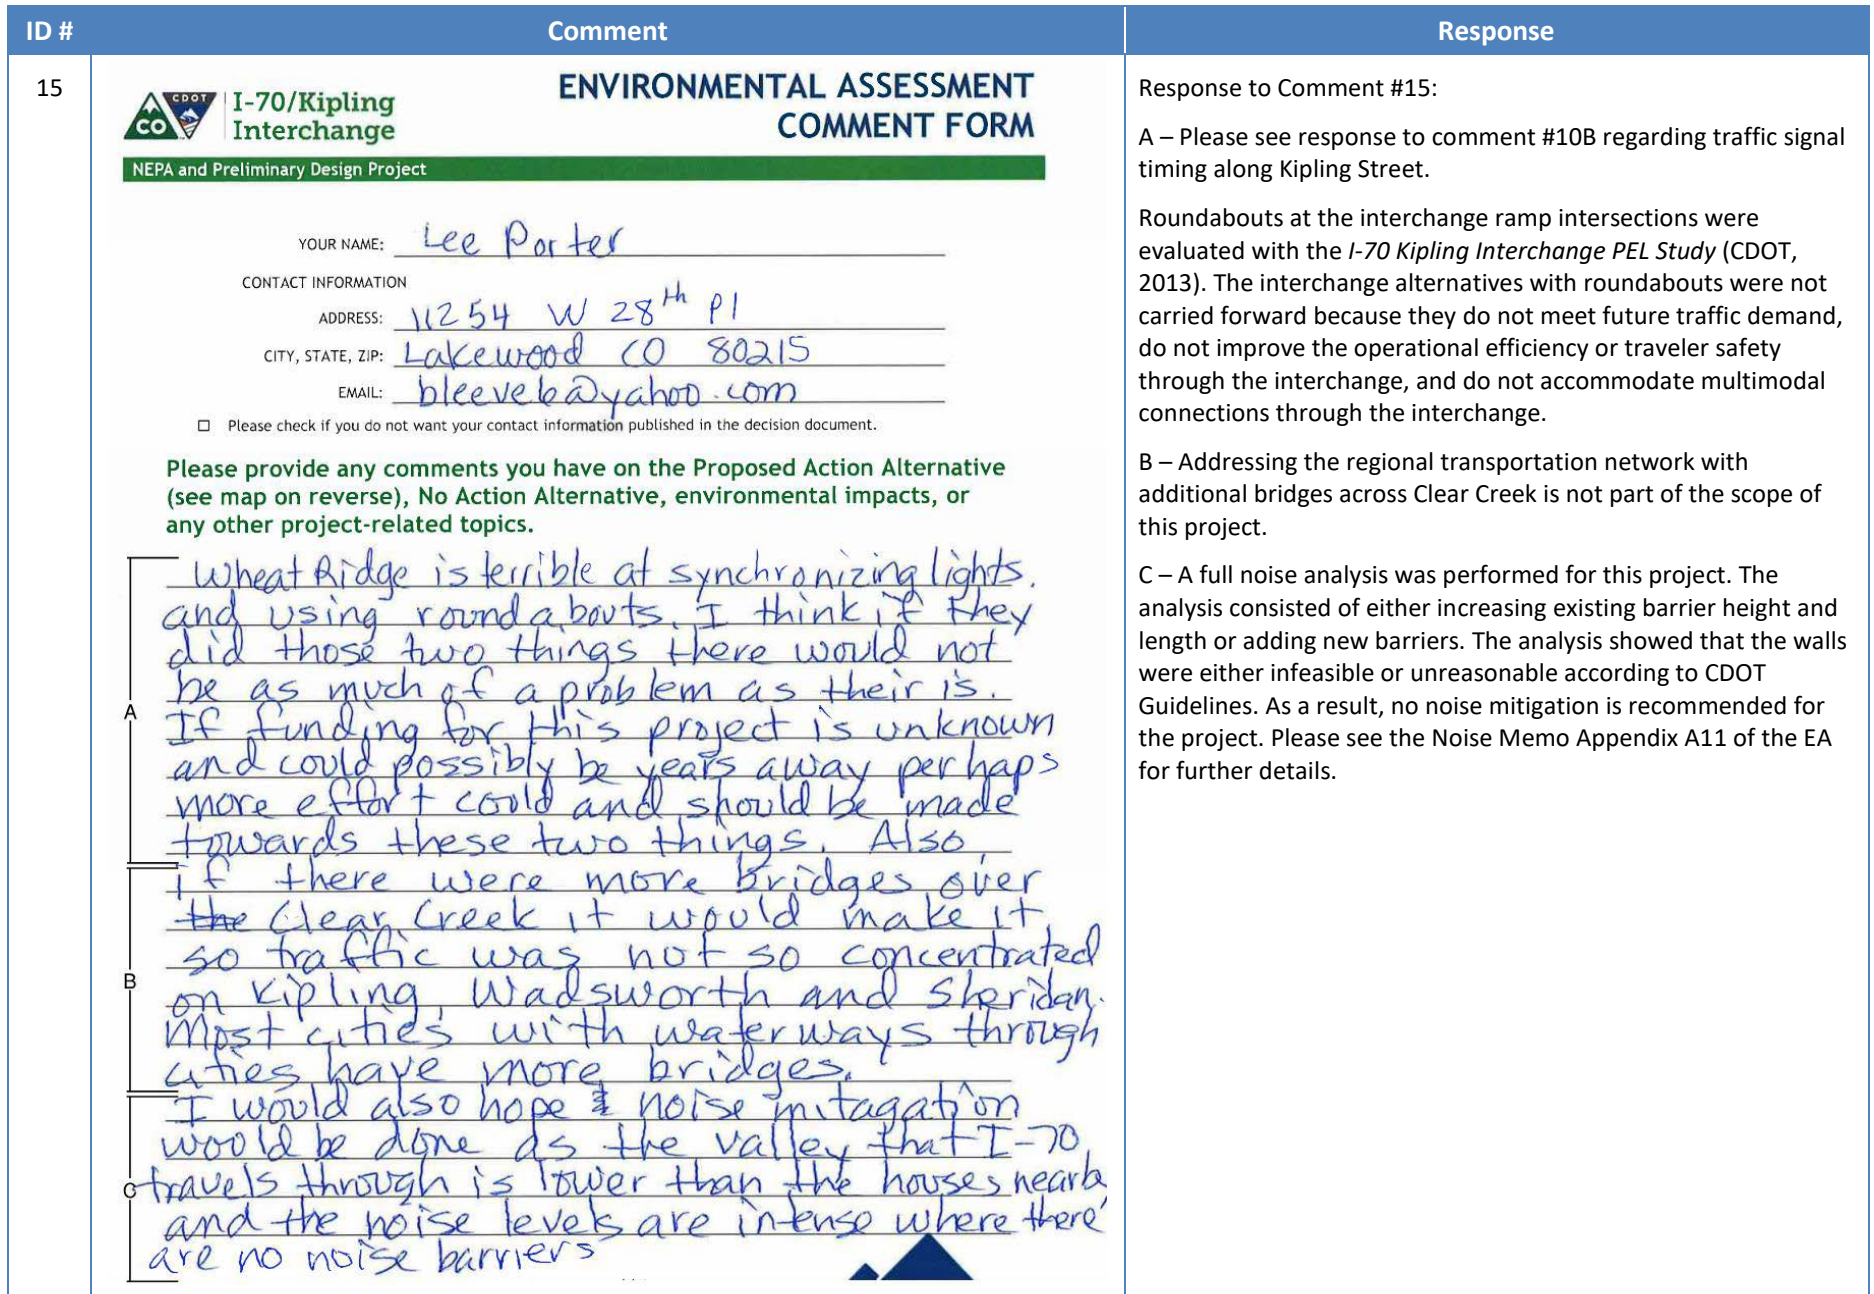 ID # Comment Response
15
CDOT
CO
I-70/Kipling
Interchange
ENVIRONMENTAL ASSESSMENT
COMMENT FORM
NEPA and Preliminary Design Project
YOUR NAME: Lee Porter
CONTACT INFORMATION
ADDRESS: 11254 W 28th Pl
CITY, STATE, ZIP: Lakewood CO 80215
EMAIL: bleeveb@yahoo.com
Please check if you do not want your contact information published in the decision document.
Please provide any comments you have on the Proposed Action Alternative
(see map on reverse), No Action Alternative, environmental impacts, or
any other project-related topics.
A
Wheat Ridge is terrible at synchronizing lights.
and using roundabouts. I think if they
did those two things there would not
be as much of a problem as their is.
If funding for this project is unknown
and could possibly be years away perhaps
more effort could and should be made
towards these two things. Also,
B
if there were more bridges over
the Clear Creek it would make it
so traffic was not so concentrated
on Kipling, Wadsworth and Sheridan.
Most cities with waterways through
cities have more bridges.
C
I would also hope noise mitagation
would be done as the valley that I-70
travels through is lower than the houses nearb
and the noise levels are intense where there
are no noise barriers
Response to Comment #15:
A – Please see response to comment #10B regarding traffic signal
timing along Kipling Street.
Roundabouts at the interchange ramp intersections were
evaluated with the I-70 Kipling Interchange PEL Study (CDOT,
2013). The interchange alternatives with roundabouts were not
carried forward because they do not meet future traffic demand,
do not improve the operational efficiency or traveler safety
through the interchange, and do not accommodate multimodal
connections through the interchange.
B – Addressing the regional transportation network with
additional bridges across Clear Creek is not part of the scope of
this project.
C – A full noise analysis was performed for this project. The
analysis consisted of either increasing existing barrier height and
length or adding new barriers. The analysis showed that the walls
were either infeasible or unreasonable according to CDOT
Guidelines. As a result, no noise mitigation is recommended for
the project. Please see the Noise Memo Appendix A11 of the EA
for further details.